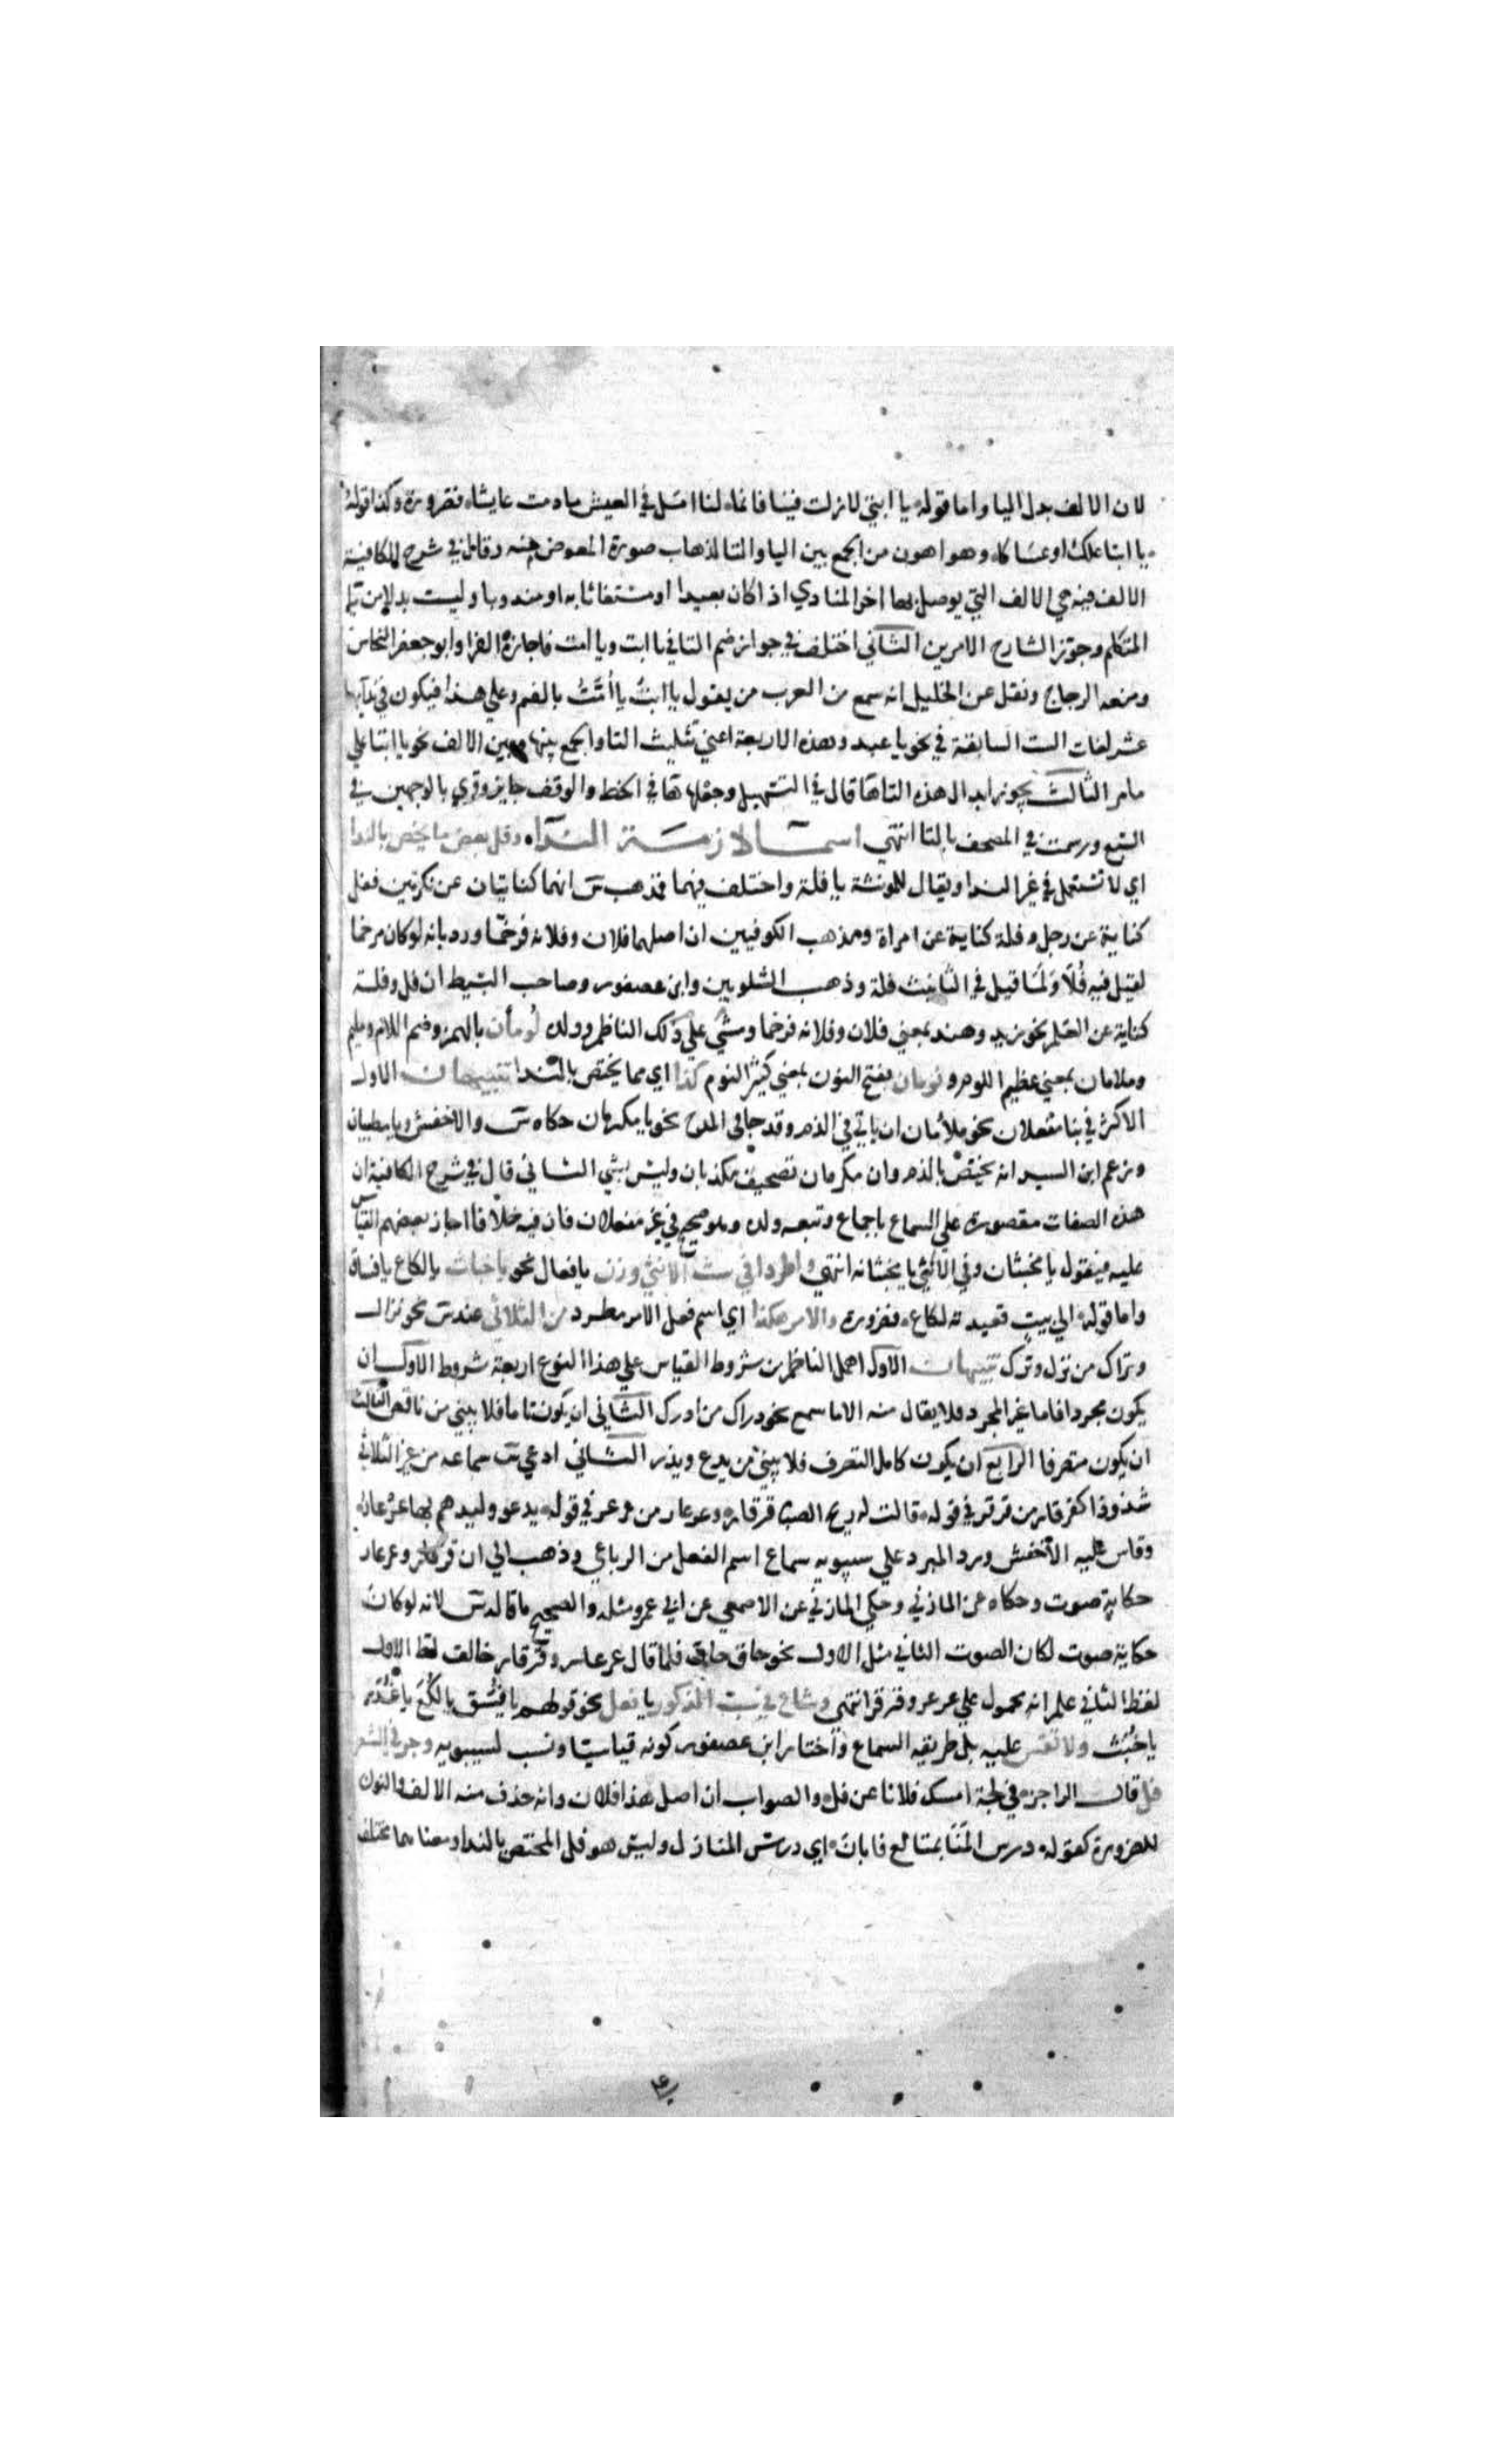 لان الالف بدل اليا واما قوله يا ابتي لا زلت فينا فانما لنا امل في العيش ما دمت عايشا فضرورة وكذا قوله
يا ابتا علك او عساكا وهو اهون من الجمع بين اليا والتا لذهاب صورة المعوض عنه وقال في شرح الكافية
الالف فيه هي الالف التي يوصل بها اخر المنادي اذا كان بعيدا او مستغاثا به او مندوبا وليست بدلا من يا
المتكلم وجوز الشارح الامرين الثاني اختلف في جواز ضم التا في يا ابت ويا امت فاجازه الفرا وابو جعفر النحاس
ومنعه الزجاج ونقل عن الخليل انه سمع من العرب من يقول يا ابتُ يا أُمَّتُ بالضم وعلي هذا فيكون في ندايها
عشر لغات الست السابقة في نحو يا عبد وهذه الاربعة اعني تثليث التا والجمع بينها وبين الالف نحو يا ابتا علي
ما مر الثالث يجوز ابدال هذه التا ها قال في التسهيل وجعلها ها في الخط والوقف جايز وقري بالوجهين في
السبع ورسمت في المصحف بالتا انتهي اسما لازمت الندا وفل بعض ما يخص بالندا
اي لا تستعمل في غير الندا ويقال للمونثة يا فلة واختلف فيهما فمذهب س انهما كنايتان عن نكرتين ففل
كناية عن رجل وفلة كناية عن امراة ومذهب الكوفيين ان اصلهما فلان وفلانة فرخما ورد بانه لو كان مرخما
لقيل فيه فُلا ولما قيل في التانيث فلة وذهب الشلوبين وابن عصفور وصاحب البسيط ان فل وفلة
كناية عن العلم نحو زيد وهند بمعني فلان وفلانة فرخما ومشي علي ذلك الناظم وولده لُومأن بالهمز وضم اللام وملم
وملامان بمعني عظيم اللوم ونومان بفتح النون بمعني كثير النوم كذا اي مما يختص بالندا تنبيهات الاول
الاكثر في بنا مفعلان نحو ملأمان ان ياتي في الذم وقد جا في المدح نحو يا مكرمان حكاه س والاخفش ويا مطيبان
وزعم ابن السيد انه يختص بالذم وان مكرمان تصحيف مكذبان وليس بشي الثاني قال في شرح الكافية ان
هذه الصفات مقصورة علي السماع باجماع وتبعه ولده وهو صحيح في غير مفعلان فان فيه خلافا اجاز بعضهم القياس
عليه فيقول يا مخبثان وفي الانثي يا مخبثانة انتهي واطردا في سب الانثي وزن يا فعال نحو يا خباث يا لكاع يا فساق
واما قوله الي بيتٍ قعيدته لكاع فضرورة والامر هكذا اي اسم فعل الامر مطرد من الثلاثي عند س نحو نزال
وتراك من نزل وترك تنبيهات الاول اهمل الناظم من شروط القياس علي هذا النوع اربعة شروط الاول ان
يكون مجردا فاما غير المجرد فلا يقال منه الا ما سمع نحو دراك من ادرك الثاني ان يكون تاما فلا يبني من ناقص الثالث
ان يكون متصرفا الرابع ان يكون كامل التصرف فلا يبني من يدع ويذر الثاني ادعي س سماعه من غير الثلاثي
شذوذا كقرقار من قرقر في قوله قالت له ريح الصبا قرقار وعرعار من عرعر في قوله يدعو وليدهم بها عرعار
وقاس عليه الاخفش ورد المبرد علي سيبويه سماع اسم الفعل من الرباعي وذهب الي ان قرقار وعرعار
حكاية صوت وحكاه عن المازني وحكي المازني عن الاصمعي عن ابي عمرو مثله والصحيح ما قاله س لانه لو كان
حكاية صوت لكان الصوت الثاني مثل الاول نحو حاق حاق فلما قال عرعار وقرقار خالف لفظ الاول
لفظ الثاني علم انه محمول علي عرعر وقرقر انتهي وشاع في سب الذكور يا فعل نحو قولهم يا فُسَق يا لُكَع يا غُدَر
يا خُبَث ولا تقس عليه بل طريقه السماع واختار ابن عصفور كونه قياسيا ونسب لسيبويه وجر في الشعر
فل قال الراجز في لجة امسك فلانا عن فل والصواب ان اصل هذا فلان وانه حذف منه الالف والنون
للضرورة كقوله درس المَنَا بمتالع فابان اي درس المنازل وليس هو فل المختص بالندا ومعناهما مختلف